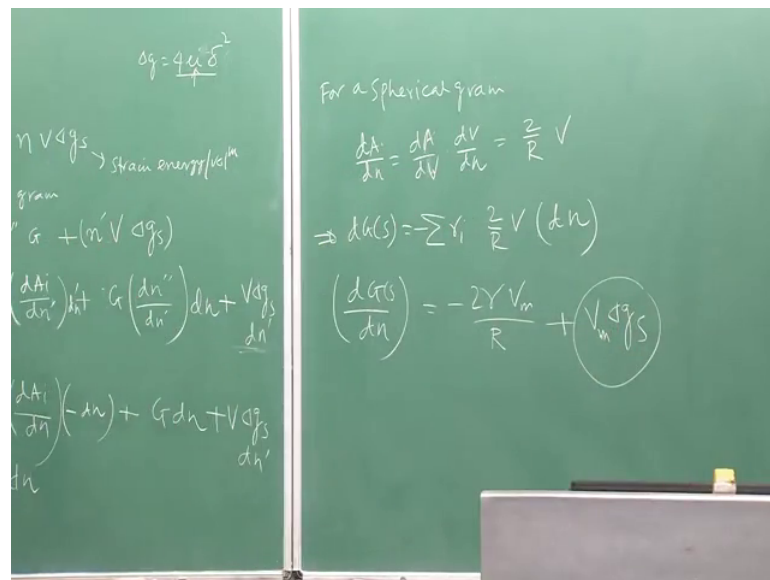 Δg = 4μδ²
n V Δgs → strain energy/volᵐ
grain
" G + (n' V Δgs)
(dAi/dn') dn' + G (dn''/dn') dn + VΔgs dn'
(dAi/dn) (-dn) + G dn + VΔgs dn'
dn
For a spherical grain
dA/dn = dA/dV · dV/dn = 2/R V
⇒ dG(s) = -∑ γi 2/R V (dn)
(dG(s/dn) = -2γVm/R + Vm Δgs